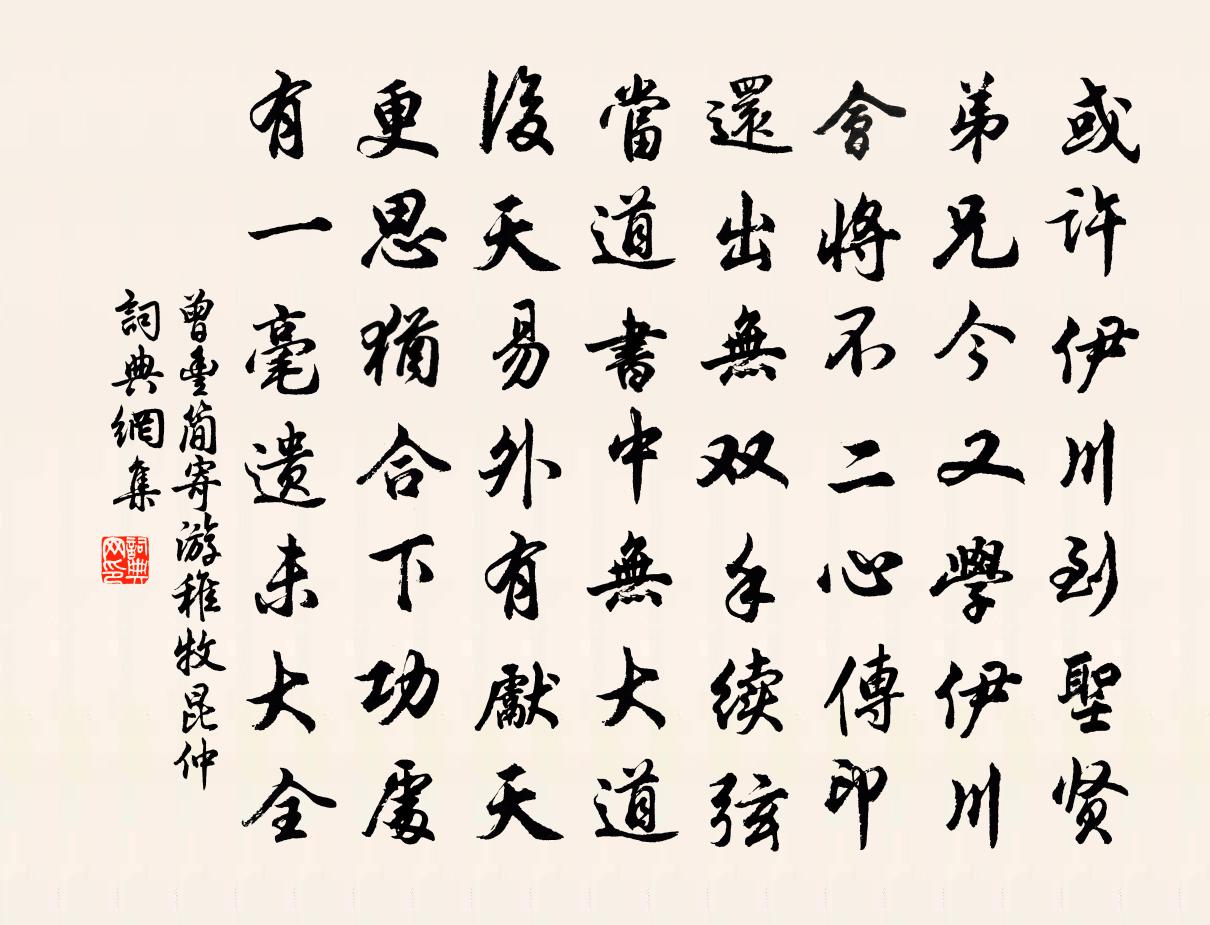 或許伊川到聖贤
弟兄今又學伊川
會將不二心傳印
還出無双手续弦
當道書中無大道
後天易外有獻天
更思猶合下功處
有一毫遗未大全
曾豊简寄游稚牧昆仲
詞典網集
詞典網印